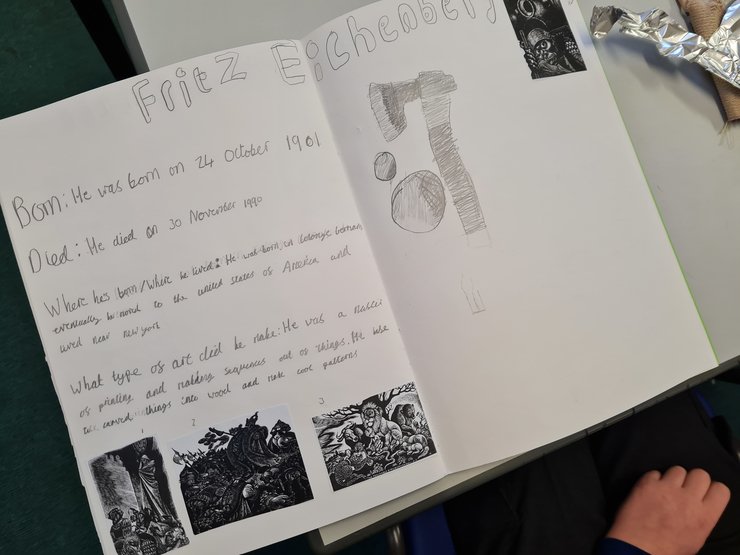 Fritz Eichenberg
Born: He was born on 24 October 1901
Died: He died on 30 November 1990
Where he's born/where he lived: He was born in Cologne German,
eventually he moved to the united states of America and
lived near New york
What type of art did he make: He was a master
of printing and making sequences out of things. He
carved things into wood and make cool patterns
1 2 3